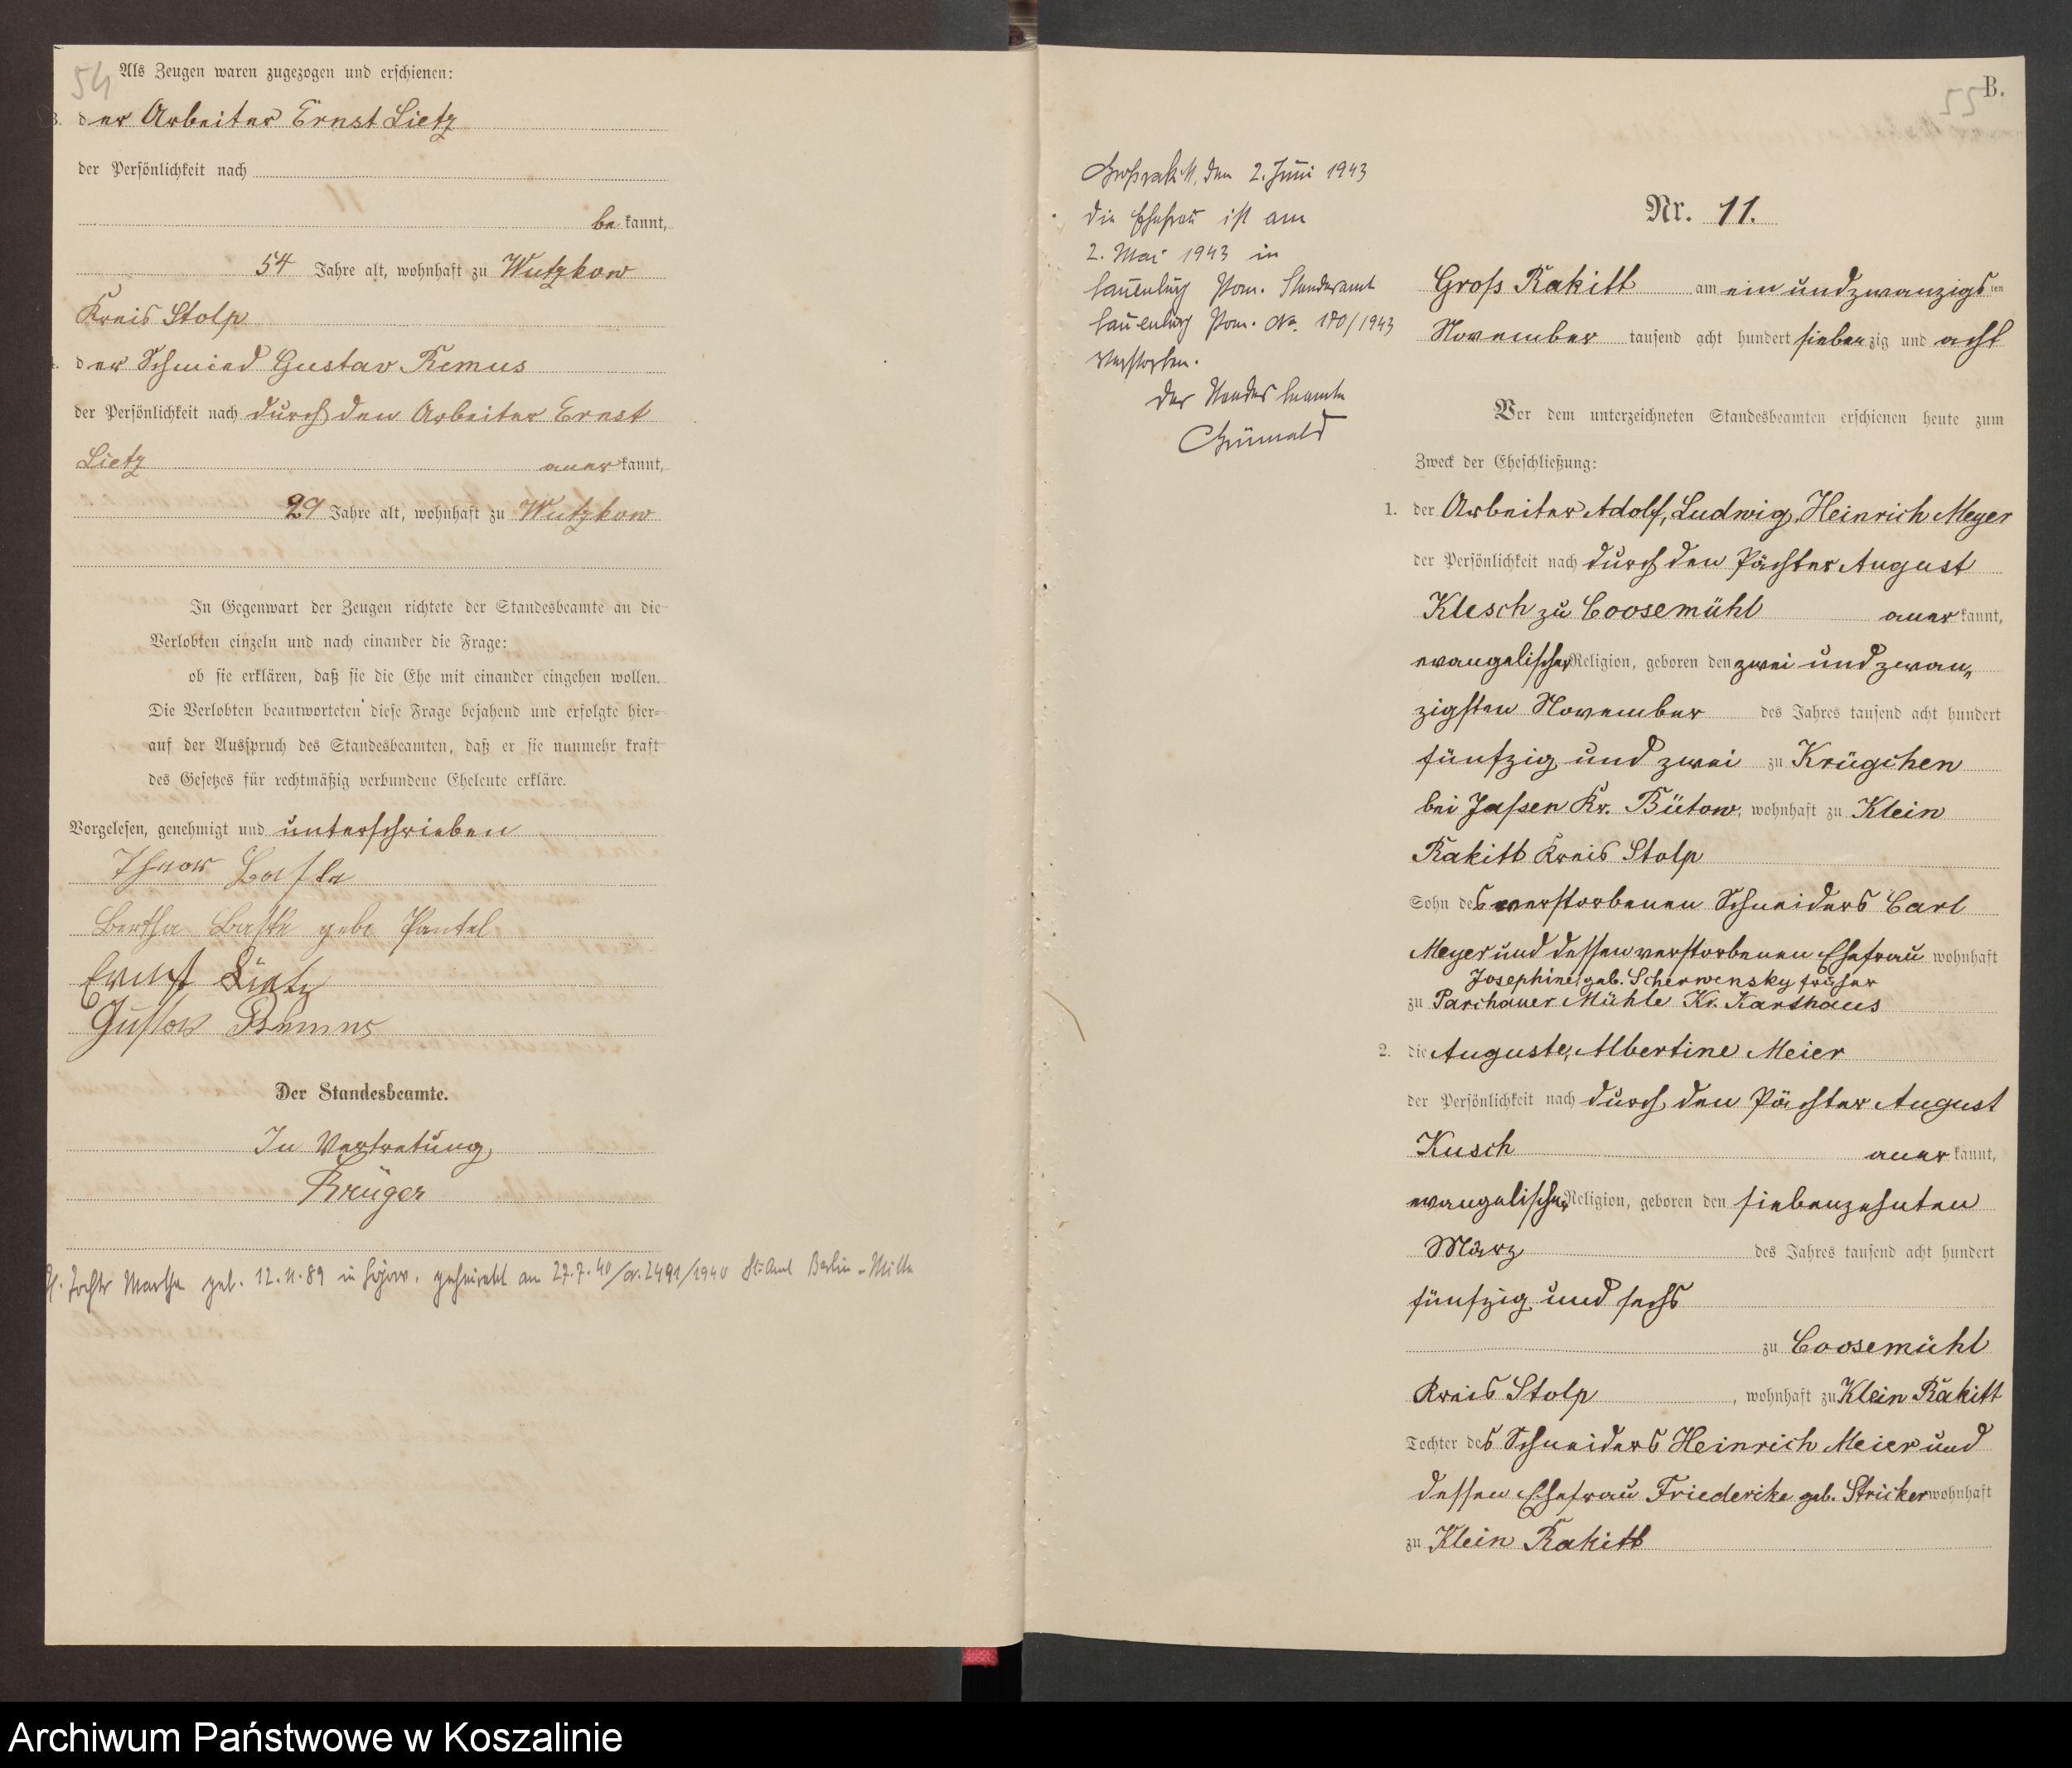 54
Als Zeugen waren zugezogen und erschienen:
3. der Arbeiter Ernst Lietz
der Persönlichkeit nach
be kannt,
54 Jahre alt, wohnhaft zu Wutzkow
Kreis Stolp
4. der Schmied Gustav Remus
der Persönlichkeit nach durch den Arbeiter Ernst
Lietz aner kannt,
29 Jahre alt, wohnhaft zu Wutzkow
In Gegenwart der Zeugen richtete der Standesbeamte an die
Verlobten einzeln und nach einander die Frage:
ob sie erklären, daß sie die Ehe mit einander eingehen wollen.
Die Verlobten beantworteten diese Frage bejahend und erfolgte hier-
auf der Ausspruch des Standesbeamten, daß er sie nunmehr kraft
des Gesetzes für rechtmäßig verbundene Eheleute erkläre.
Vorgelesen, genehmigt und unterschrieben
Bertha geb. Pantel
Ernst Lietz
Gustav Remus
Der Standesbeamte.
In Vertretung
Krüger
Tochter Martha geb. 12.11.89 in geheiratet am 27.7.40 /Nr. 2491/1940 St.Amt Berlin-Mitte
B.
55
Großrakitt, den 2. Juni 1943
Die Ehefrau ist am
2. Mai 1943 in
Lauenburg Pom. Standesamt
Lauenburg Pom. Nr. 170/1943
verstorben.
Der Standesbeamte
Grünwald
Nr. 11.
Groß Rakitt am ein und zwanzigsten
November tausend acht hundert siebenzig und acht
Vor dem unterzeichneten Standesbeamten erschienen heute zum
Zweck der Eheschließung:
1. der Arbeiter Adolf, Ludwig, Heinrich Meyer
der Persönlichkeit nach durch den Pächter August
Klesch zu Coosemühl aner kannt,
evangelischer Religion, geboren den zwei und zwan„
zigsten November des Jahres tausend acht hundert
fünfzig und zwei zu Krügchen
bei Jassen Kr. Bütow, wohnhaft zu Klein
Rakitt Kreis Stolp
Sohn des verstorbenen Schneiders Carl
Meyer und dessen verstorbenen Ehefrau wohnhaft
Josephine, geb. Scherwensky früher
zu Parchauer Mühle Kr. Karthaus
2. die Auguste, Albertine Meier
der Persönlichkeit nach durch den Pächter August
Kusch aner kannt,
evangelischer Religion, geboren den siebenzehnten
März des Jahres tausend acht hundert
fünfzig und sechs
zu Coosemühl
Kreis Stolp, wohnhaft zu Klein Rakitt
Tochter des Schneiders Heinrich Meier und
dessen Ehefrau Friedericke geb. Stricker wohnhaft
zu Klein Rakitt
Archiwum Państwowe w Koszalinie